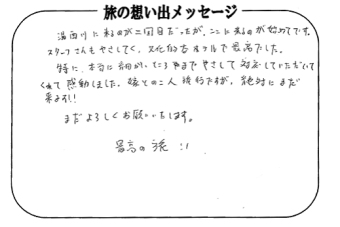 旅の想い出メッセージ
湯西川に来るのが二回目だったが、ここに来るのが始めてです。
スタッフさんもやさしくて、文化的なホテルで最高でした。
特に、本当に細かいところまでやさしく対応していただいて
くれて感動しました。嫁との二人旅行だが、絶対にまだ
来ます!!
まだよろしくお願いいたします。
最高の旅 !!